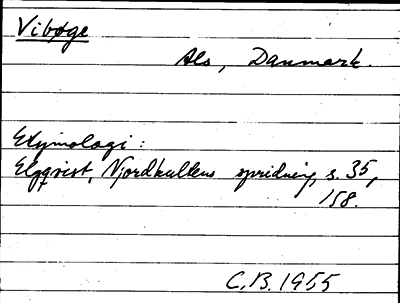 Vibøge
Als, Danmark.
Etymologi:
Elgqvist, Njordkultens spridning, s. 35,
158.
C.B. 1955